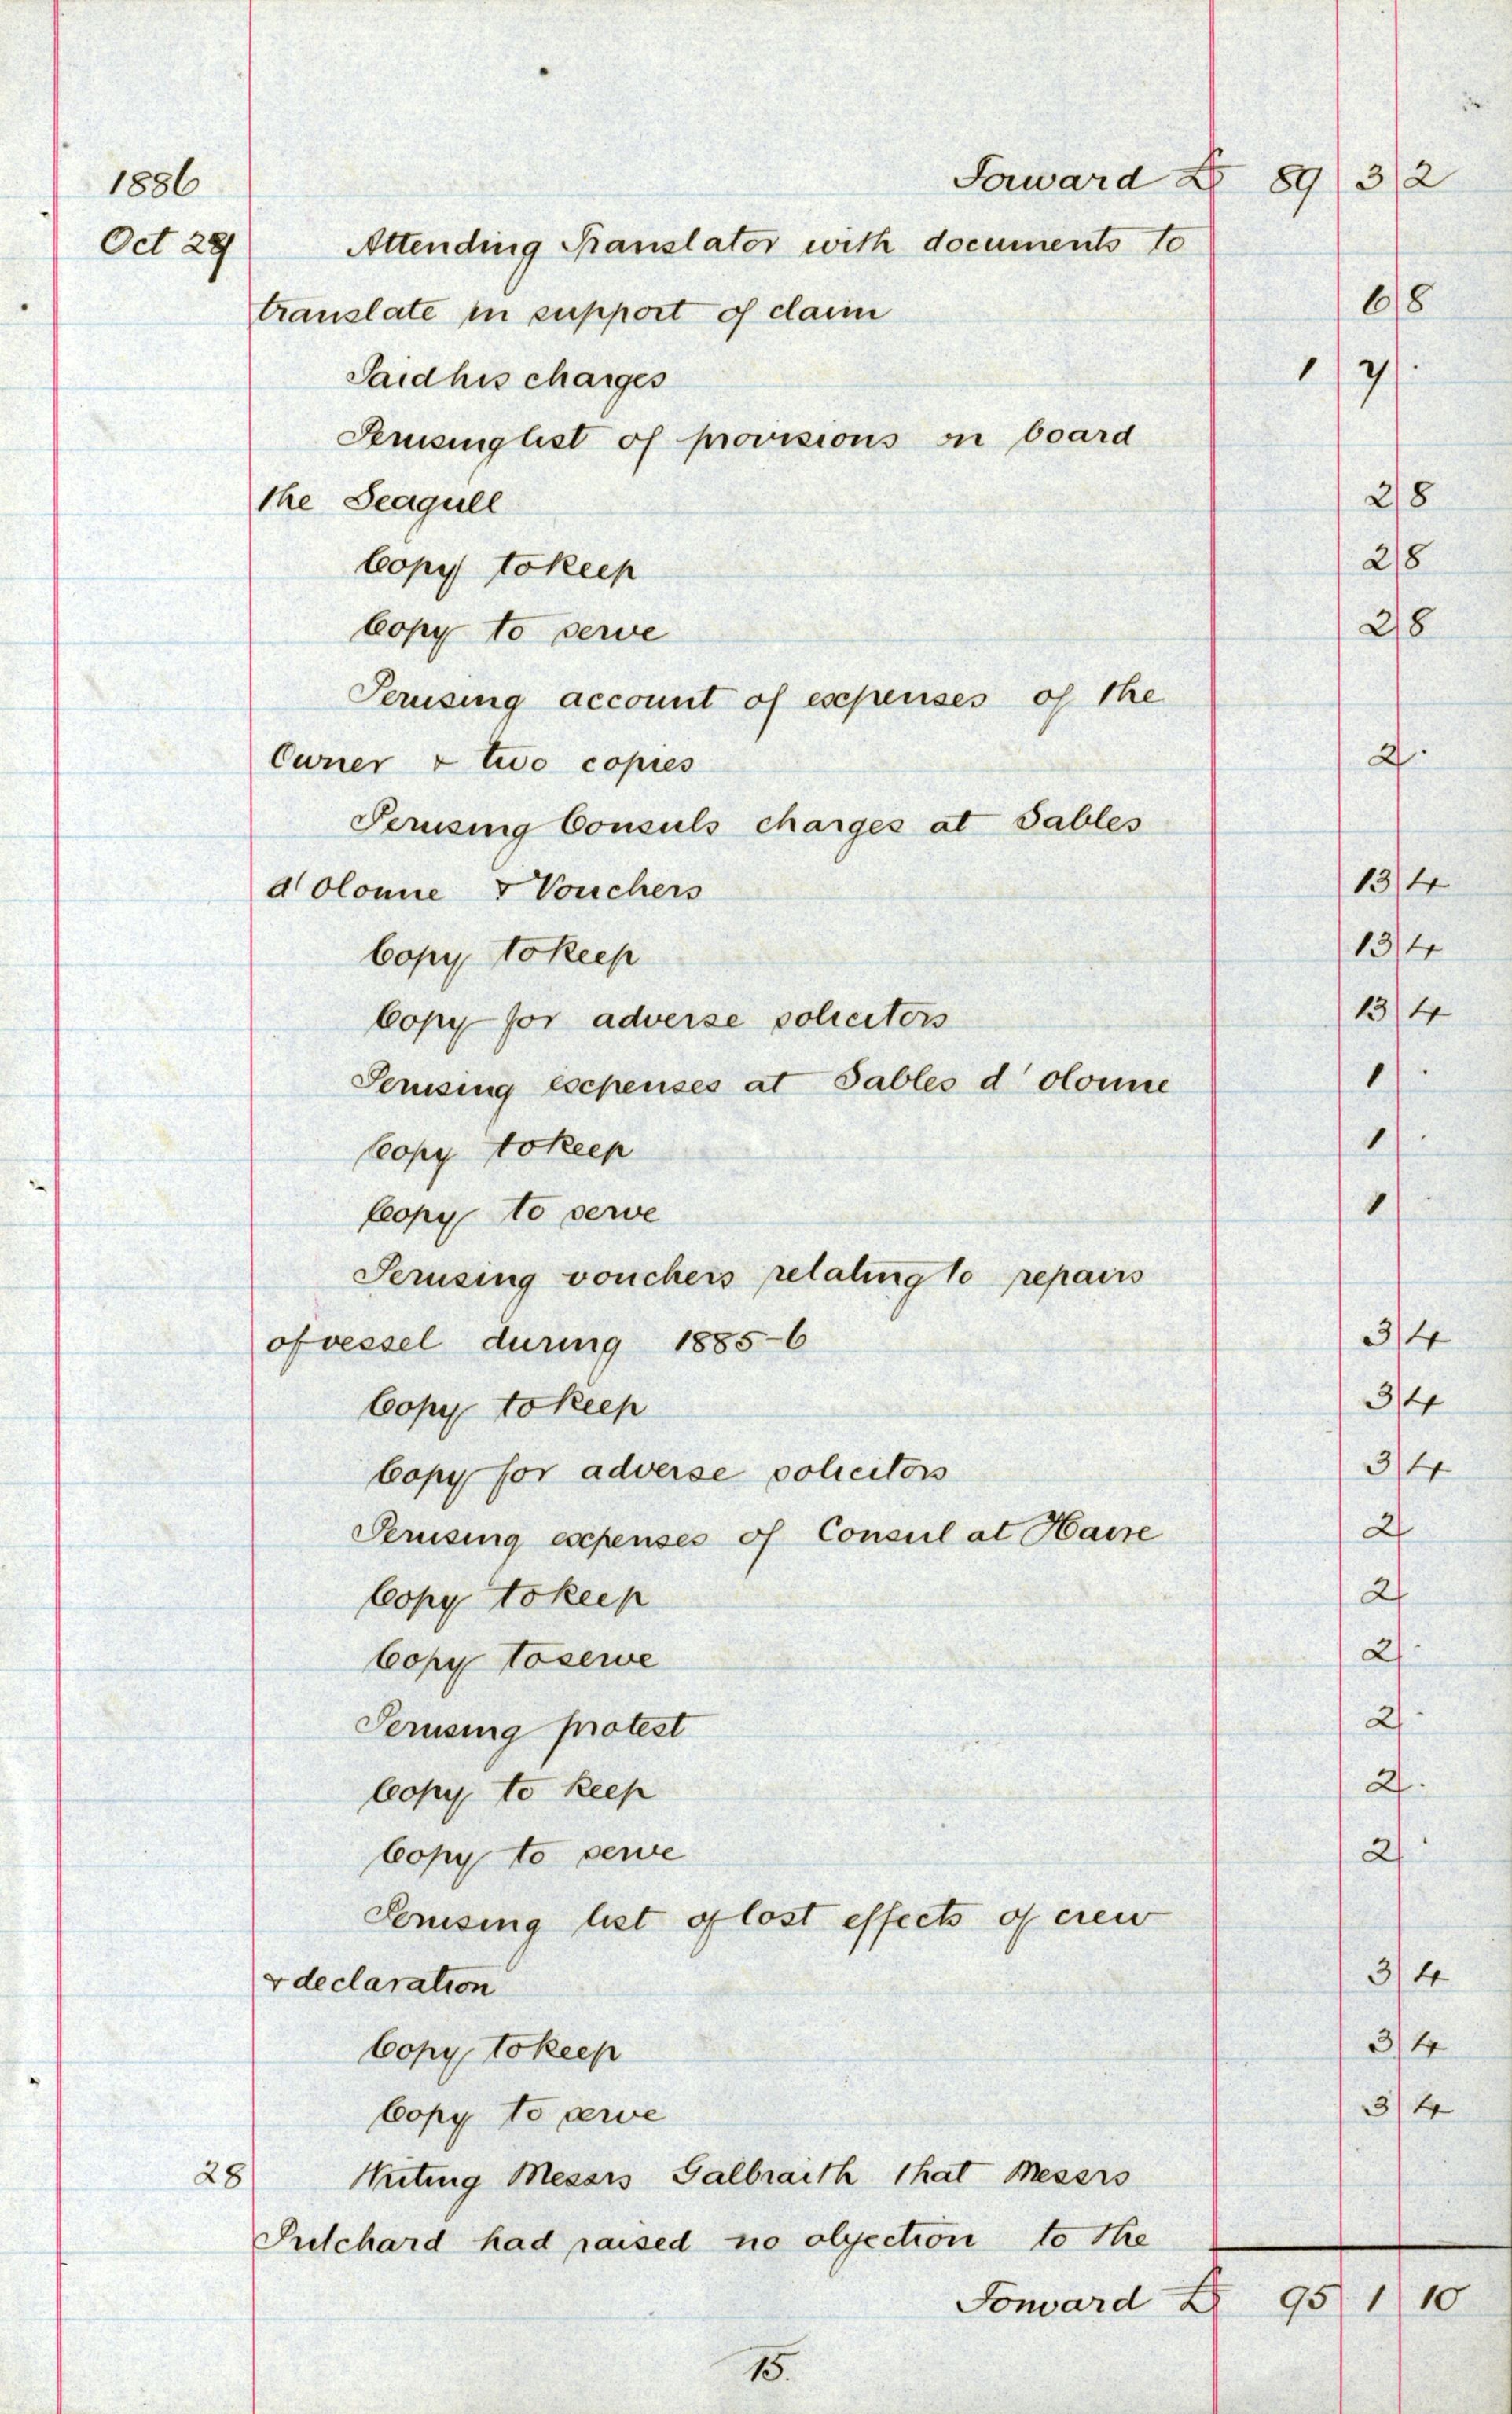 1886 Forward £ 89 3 2
Oct 29 Attending Translator with documents to
translate in support of claim 6 8
Paid his charges 1 7 .
Perusing list of provisions on board
the Seagull 2 8
Copy to keep 2 8
Copy to serve 2 8
Perusing account of expenses of the
Owner & two copies 2 .
Perusing Consuls charges at Sables
d'olonne & Vouchers 13 4
Copy to keep 13 4
Copy for adverse solicitors 13 4
Perusing expenses at Sables d'olonne 1 .
Copy to keep 1 .
Copy to serve 1 .
Perusing vouchers relating to repairs
of vessel during 1885-6 3 4
Copy to keep 3 4
Copy for adverse solicitors 3 4
Perusing expenses of Consul at Havre 2
Copy to keep 2
Copy to serve 2 .
Perusing protest 2 .
Copy to keep 2 .
Copy to serve 2 .
Perusing list of lost effects of crew
& declaration 3 4
Copy to keep 3 4
Copy to serve 3 4
28 Writing Messrs Galbraith that Messrs
Pritchard had raised no objection to the
Forward £ 95 1 10
15.